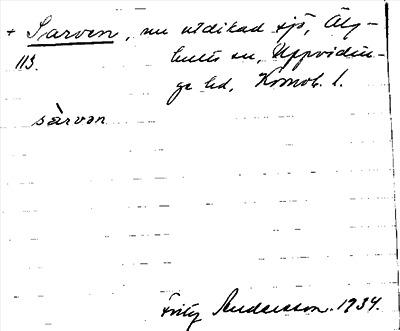 + Sarven, nu utdikad sjö, Älg-
113. hults sn, Uppvidin-
ge hd, Kronob. l.
sàrvən
Fritz Andersson. 1934.